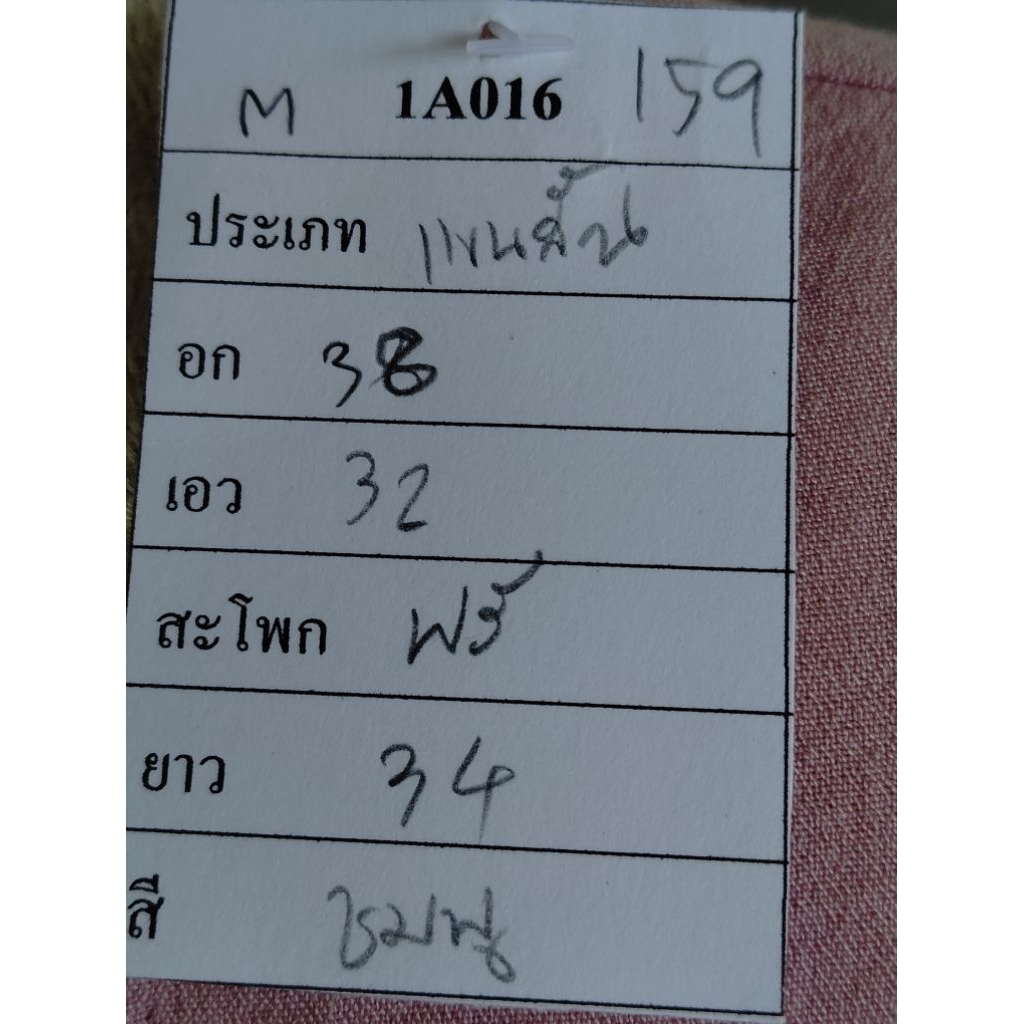 M 1A016 159
ประเภท แขนสั้น
อก 38
เอว 32
สะโพก ฟรี
ยาว 34
สี ชมพู